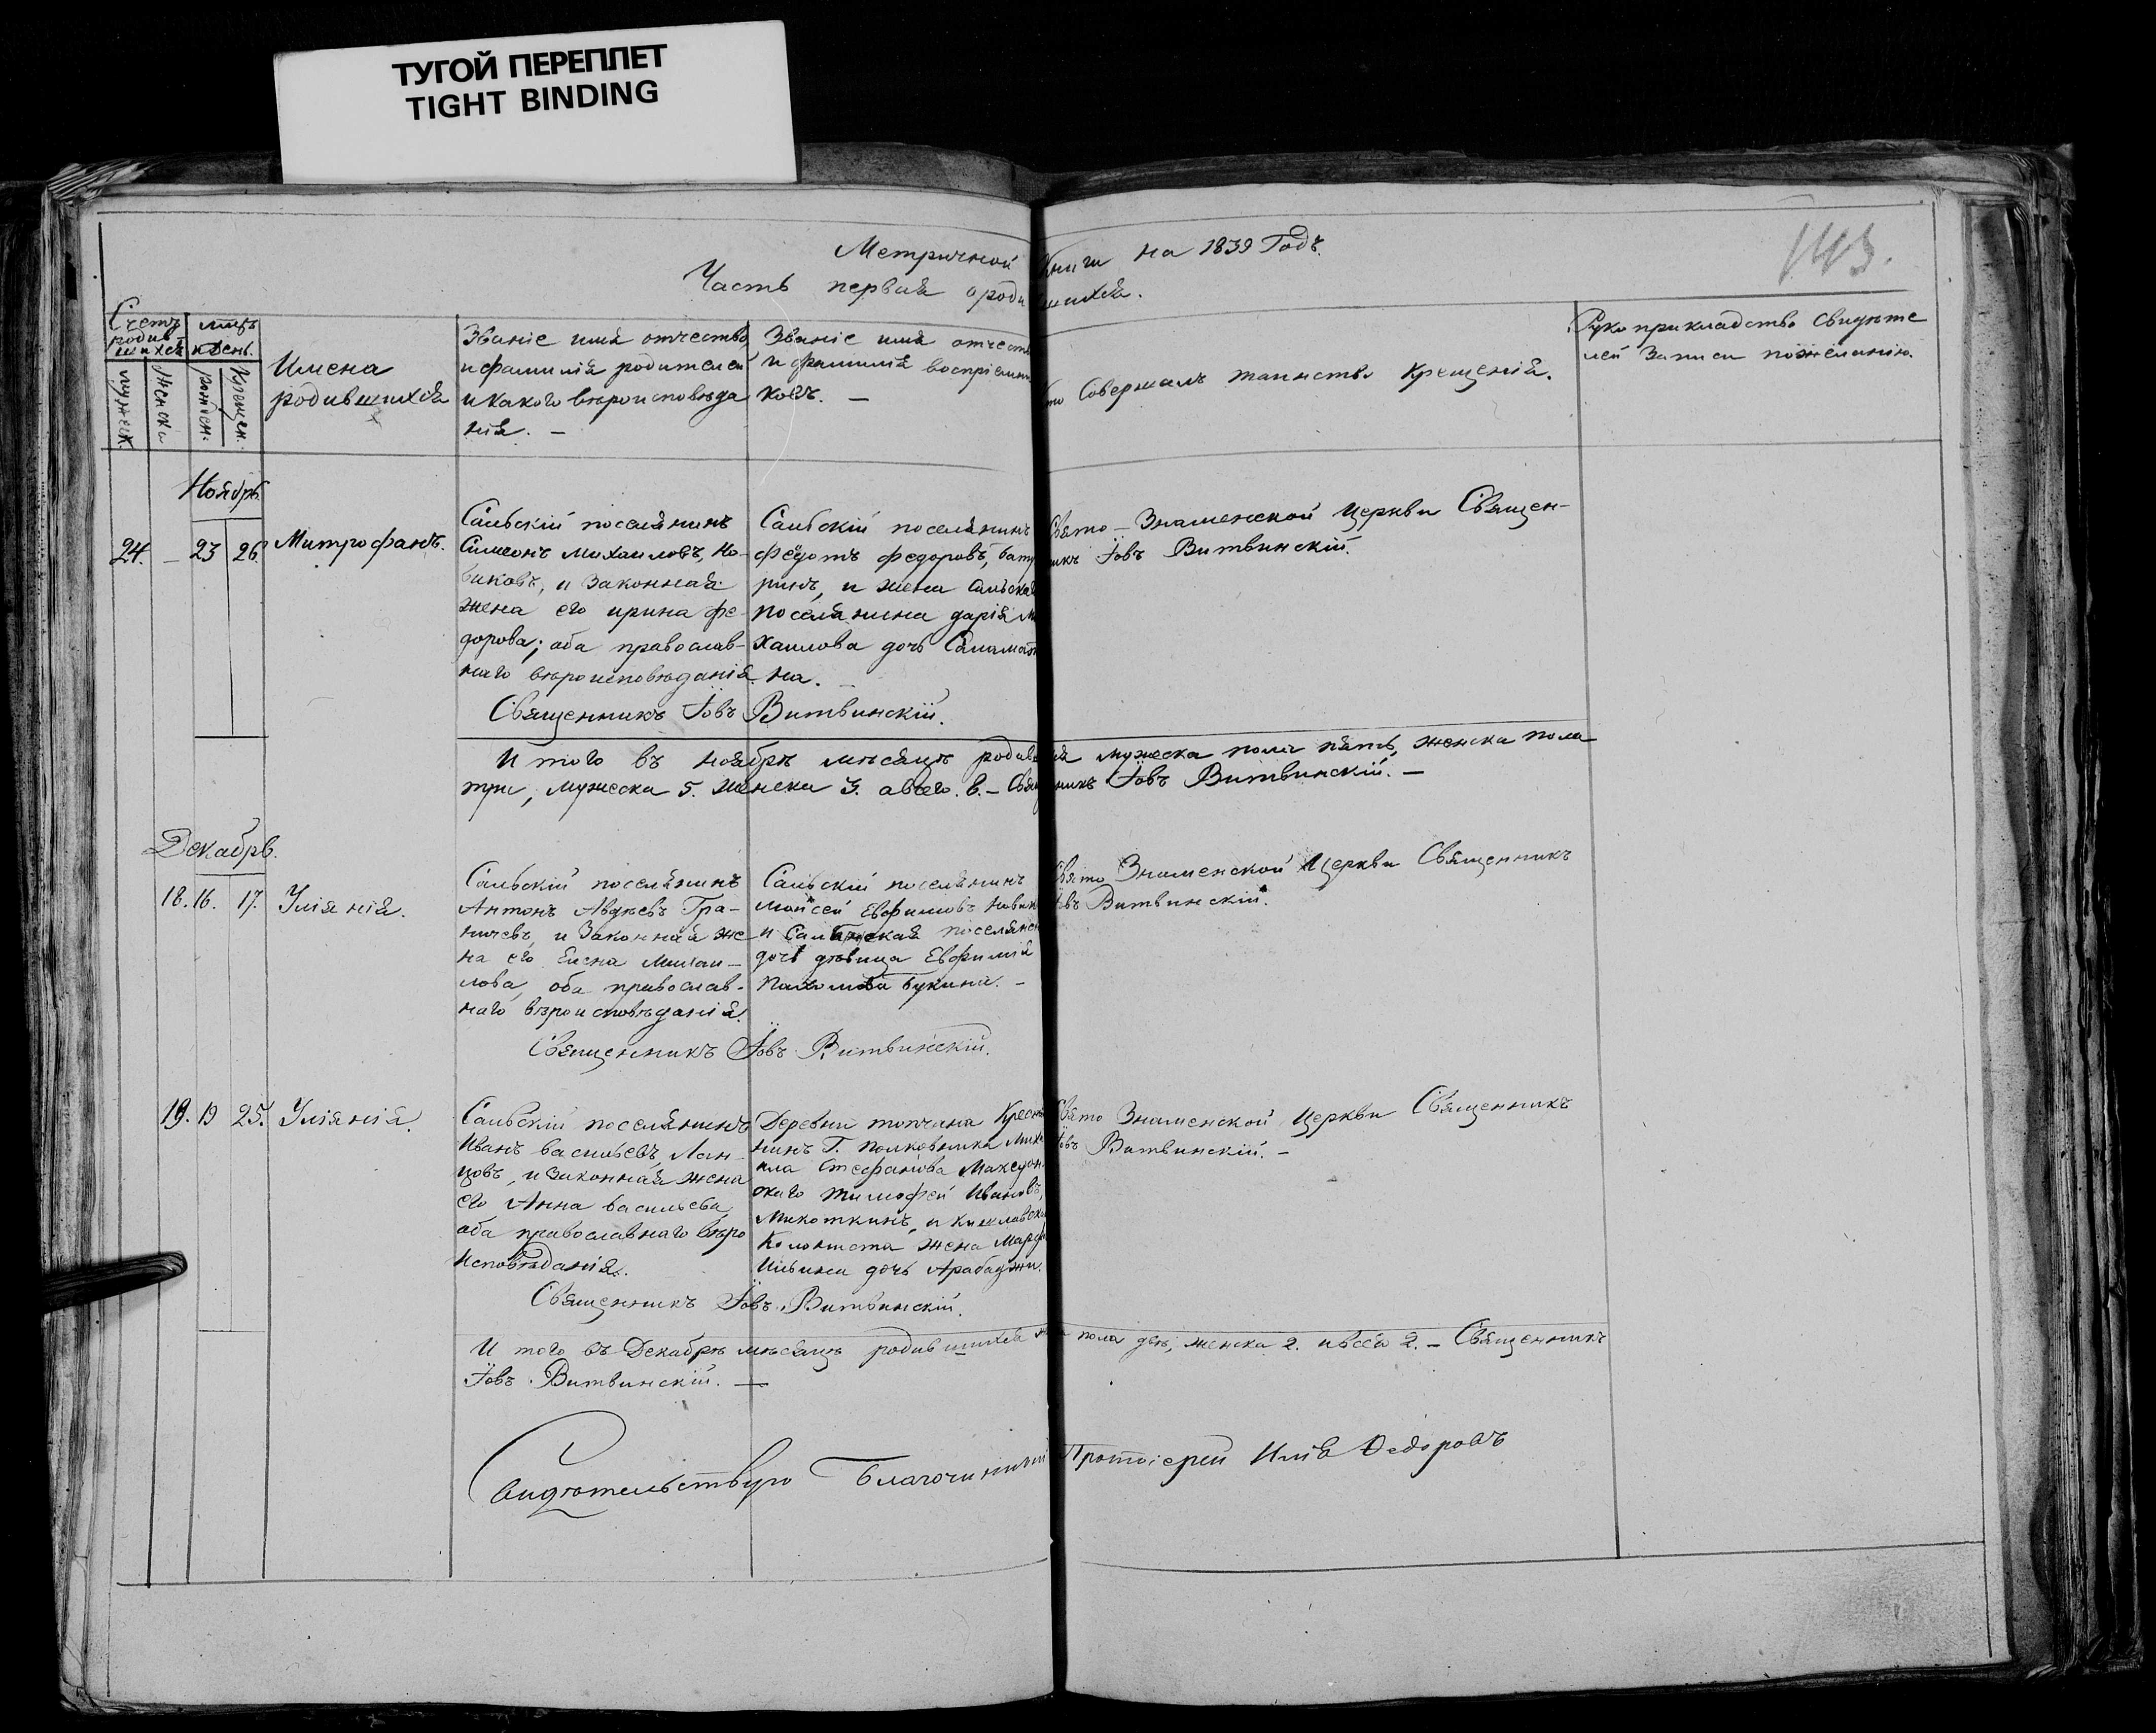 ТУГОЙ ПЕРЕПЛЕТ
TIGHT BINDING
143.
Метричной Книги на 1839 Годъ.
Часть первая о родившихся.
Счетъ родив шихся
мужеск.
Женска
мцъ и день.
рожден:
Крещен.
Имена
родившихся
Званіе имя отчество,
и фамилія родителей
и какого вѣроисповѣда
нія. –
Званіе имя отчест
и фамилія воспріемни
ковъ. –
Кто Совершалъ таинство Крещенія.
Рукоприкладство Свидѣте
лей Записи пожеланію.
Ноябрь
24. – 23 26. Митрофанъ.
Симеонъ Михаиловъ, Но-
виковъ, и Законная
жена его ирина фе-
дорова; оба православ-
наго вѣроисповѣданія.
поселянинъ
Федотъ федоровъ, бату
ринъ, и жена
поселянина дарія М
хаилова дочь
на.
Свято – Знаменской Церкви Священ-
никъ Іовъ Витвинскій.
Священникъ Іовъ Витвинскій.
И того въ ноябрѣ мѣсяцѣ родив мужеска пола пять, женска пола
три, мужеска 5. женска 3. а всего. 8. – Священникъ Іовъ Витвинскій. –
Декабрь.
18. 16. 17. Уліянія.
поселянинъ
Антонъ Авдѣевъ Гра-
ничевъ, и Законная же
на его Елена Михаи-
лова, оба православ-
наго вѣроисповѣданія.
поселянинъ
Моисей Евфимовъ Новик
и поселянс
дочь дѣвица Евфимія
Пахомова букина. –
Свято Знаменской Церкви Священникъ
Іовъ Витвинскій.
Священникъ Іовъ Витвинскій.
19. 19 25. Уліянія.
поселянинъ
Иванъ васильевъ Лан-
цовъ, и законная жена
его Анна васильева,
оба православнаго вѣро
исповѣданія.
Деревни топчина Крестья
нинъ Г. полковника Миха
ила Стефанова Македон-
скаго тимофей Ивановъ,
Микоткинъ, и
Колониста жена Марфа
Ильина дочь Арабаджи.
Свято Знаменской Церкви Священникъ
Іовъ Витвинскій. –
Священникъ Іовъ Витвинскій.
И того въ Декабрѣ мѣсяцѣ родившихся пола двѣ, женска 2. и всѣя 2. – Священникъ
Іовъ Витвинскій. –
Свидѣтельствую Благочинный Протоіерей Илія Ѳедоровъ